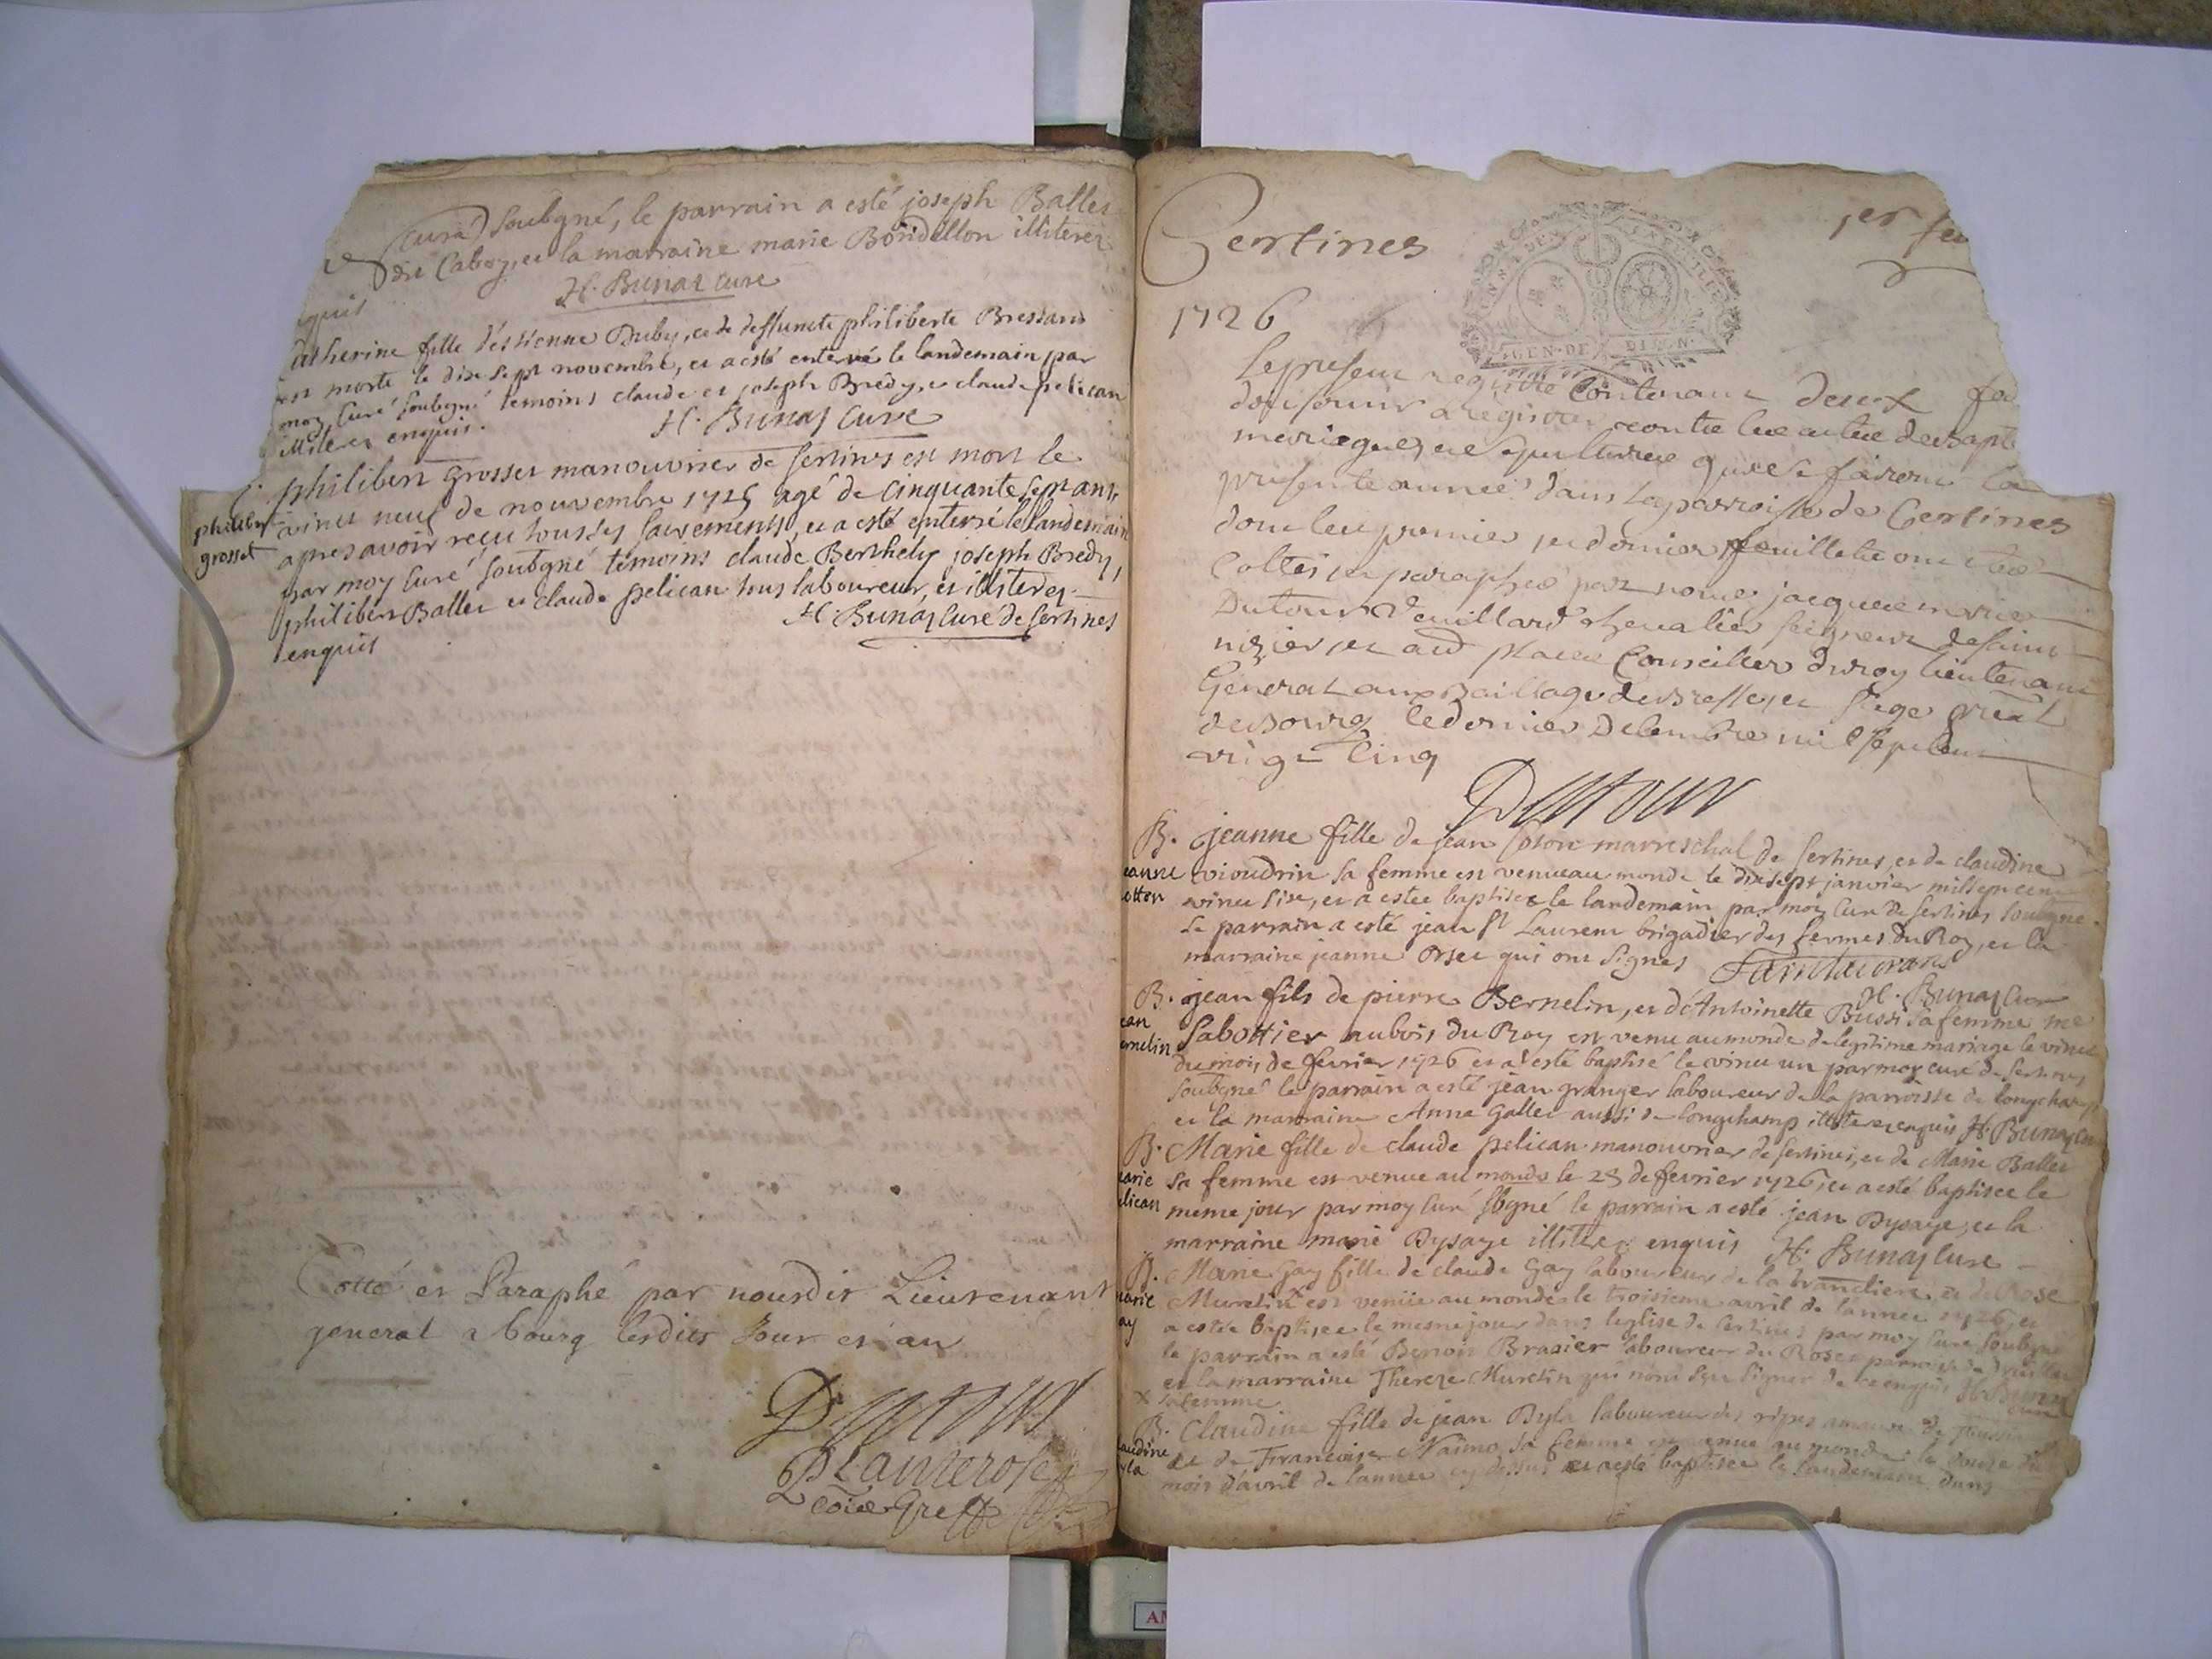 Curé soubgné, le parrain a esté joseph Ballet
dit Caboz, et la marraine marie Bondellon illiterez
H. Bunaz Curé
Catherine fille d'estienne Buby, et de deffuncte philiberte Bressand
est morte le dix sept novembre, et a esté enterré le landemain par
moy Curé soubgné temoins claude et joseph Bredy, et claude pelican
illiterez enquis.
H. Bunaz Curé
philibert
grosset
philibert Grosset manouvrier de sertines est mort le
vint neuf de nouvembre 1725 agé de cinquante sept ans,
apres avoir reçu tous les sacrements, et a esté enterré le landemain
par moy Curé soubgné temoins claude Berthely joseph Bredy,
philibert Ballet et claude pelican tous laboureur, et illiterez
enquis
H. Bunaz Curé de sertines
Cotté et Paraphé par nousdit Lieutenant
general a bourg lesdits Jour et an
Dutour
Planterose
Certines
1er feu
GEN. DE DIJON.
1726
Le present registre Contenant deux
pour servir a registrer contre les actes de bapt
mariages et sepultures qui se fairont la
presente année dans la parroisse de Certines
dont les premier et dernier feuillets ont esté
Cottés et paraphés par nous jacques marie
Dutour Veuillard chevalier seigneur de saint
nizier et aud places Conseiller du roy lieutenant
General aux Baillage de Bresse et siege preal
de Bourg le dernier Decembre mil sept cent
vingt Cinq
Dutour
B. jeanne fille de jean Coton marreschal de sertines, et de claudine
eanne
otton
vioudrin sa femme est venue au monde le dix sept janvier mil sept cent
vint sixe, et a estée baptisée le landemain par moy Curé de sertines soubgné
le parrain a esté jean St Laurent brigadier des fermes du Roy, et la
marraine jeanne Orset qui ont signes
H. Bunaz Curé
B. jean fils de pierre Bernelin, et d'Antoinette Bussi sa femme me
ean
ernelin
sabottier aubois du Roy est venu au monde de legitime mariage le vint
du mois de fevrier 1726 et a esté baptisé le vint un par moy curé de sertines
soubgné le parrain a esté jean granger laboureur de la parroisse de longchamp
et la marraine Anne Gallet aussi de longchamp illiterez enquis H. Bunaz Curé
B. Marie fille de claude pelican manouvrier de sertines, et de Marie Ballet
arie
elican
sa femme est venue au monde le 25 de fevrier 1726, et a esté baptisee le
meme jour par moy Curé sbgné le parrain a esté jean Dysaye, et la
marraine marie Dysaye illiterez enquis H. Bunaz Curé
B. Marie Gay fille de claude Gay laboureur de la tranclière et de Rose
marie
ay
Muretin x est venüe au monde le troisieme avril de l'année 1726, et
a estée baptisée le mesme jour dans leglise de sertines par moy Curé soubgné
le parrain a esté Benoit Brasier laboureur du Roset parroisse de
et la marraine Thereze Muretin qui n'ont sçu signer de ce enquis H. Bunaz
curé
x sa femme
B. Claudine fille de jean Byla laboureur des ripes
laudine
yla
et de Francoise Naimo sa femme est venue au monde le douze du
mois d'avril de l'année cy dessus et a esté baptisée le landemain dans